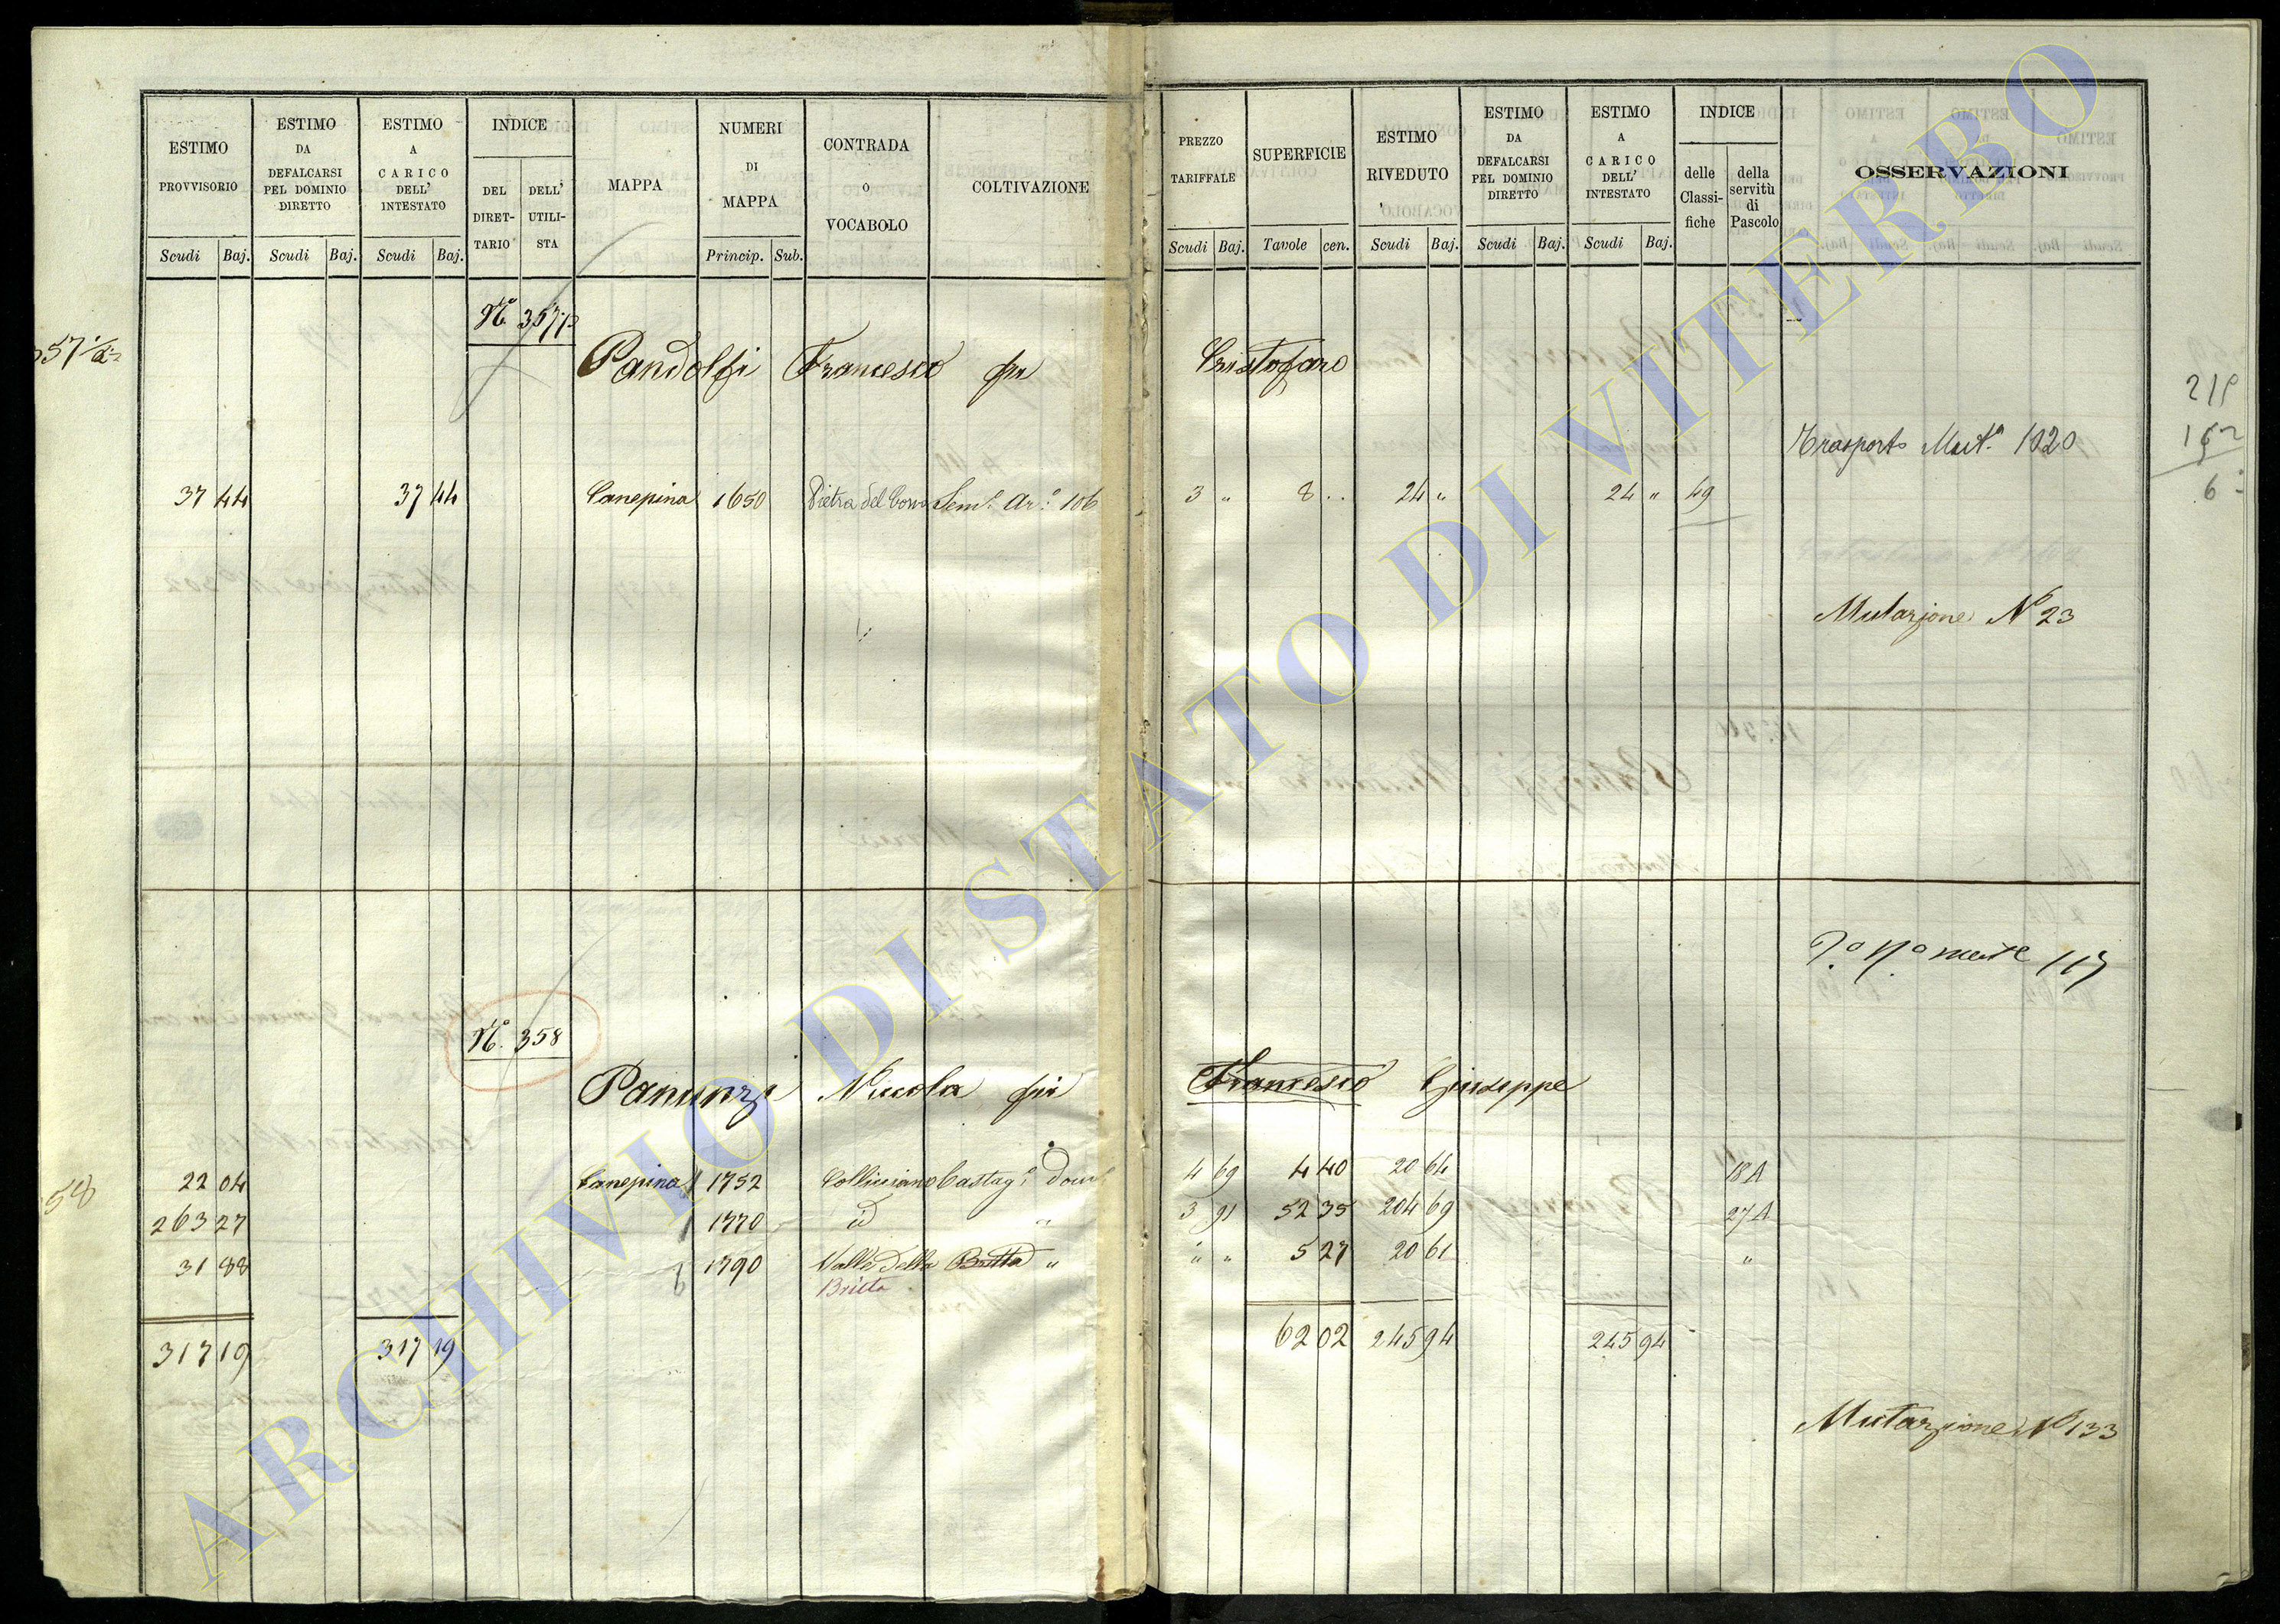 ESTIMO PROVVISORIO Scudi Baj.
ESTIMO DA DEFALCARSI PEL DOMINIO DIRETTO Scudi Baj.
ESTIMO A CARICO DELL' INTESTATO Scudi Baj.
INDICE DEL DIRET-TARIO DELL' UTILI-STA
MAPPA
NUMERI DI MAPPA Princip. Sub.
CONTRADA O VOCABOLO
COLTIVAZIONE
PREZZO TARIFFALE Scudi Baj.
SUPERFICIE Tavole cen.
ESTIMO RIVEDUTO Scudi Baj.
ESTIMO DA DEFALCARSI PEL DOMINIO DIRETTO Scudi Baj.
ESTIMO A CARICO DELL' INTESTATO Scudi Baj.
INDICE delle Classi-fiche della servitù di Pascolo
OSSERVAZIONI
Pandolfi Francesco fu Cristofaro
Trasporto Mut.ª 1020
37 44 37 44 Canepina 1650 Pietra del Corvo Sem.º Ar.º 106 3 " 8 .. 24 " 24 " 49
Mutazione Nº 23
Nº. 358
Panunzi Niccola fu Francesco Giuseppe
22 04 Canepina 1752 Collicciano Castag.º 4 69 4 40 20 64 18A
263 27 1770 id " 3 91 52 35 204 69 27A
31 88 1790 Valle della Britta " " " 5 27 20 61 "
Britta
317 19 317 19 62 02 245 94 245 94
Mutazione Nº 133
ARCHIVIO DI STATO DI VITERBO